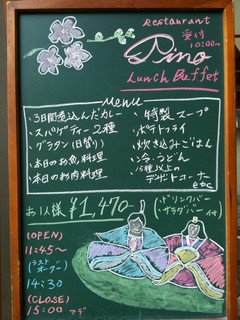 restaurant
Pino
受付
10:00〜
Lunch Buffet
Menu
・3日間煮込んだカレー
・スパゲティー2種
・グラタン(日替り)
・本日のお魚料理
・本日のお肉料理
・特製スープ
・ポテトフライ
・炊き込みごはん
・冷・うどん
・15種以上の
デザートコーナー
etc
お1人様 ¥1,470-
・ドリンクバー
・サラダバー 付
(OPEN)
11:45〜
(ラストオーダー)
14:30
(CLOSE)
15:00マデ